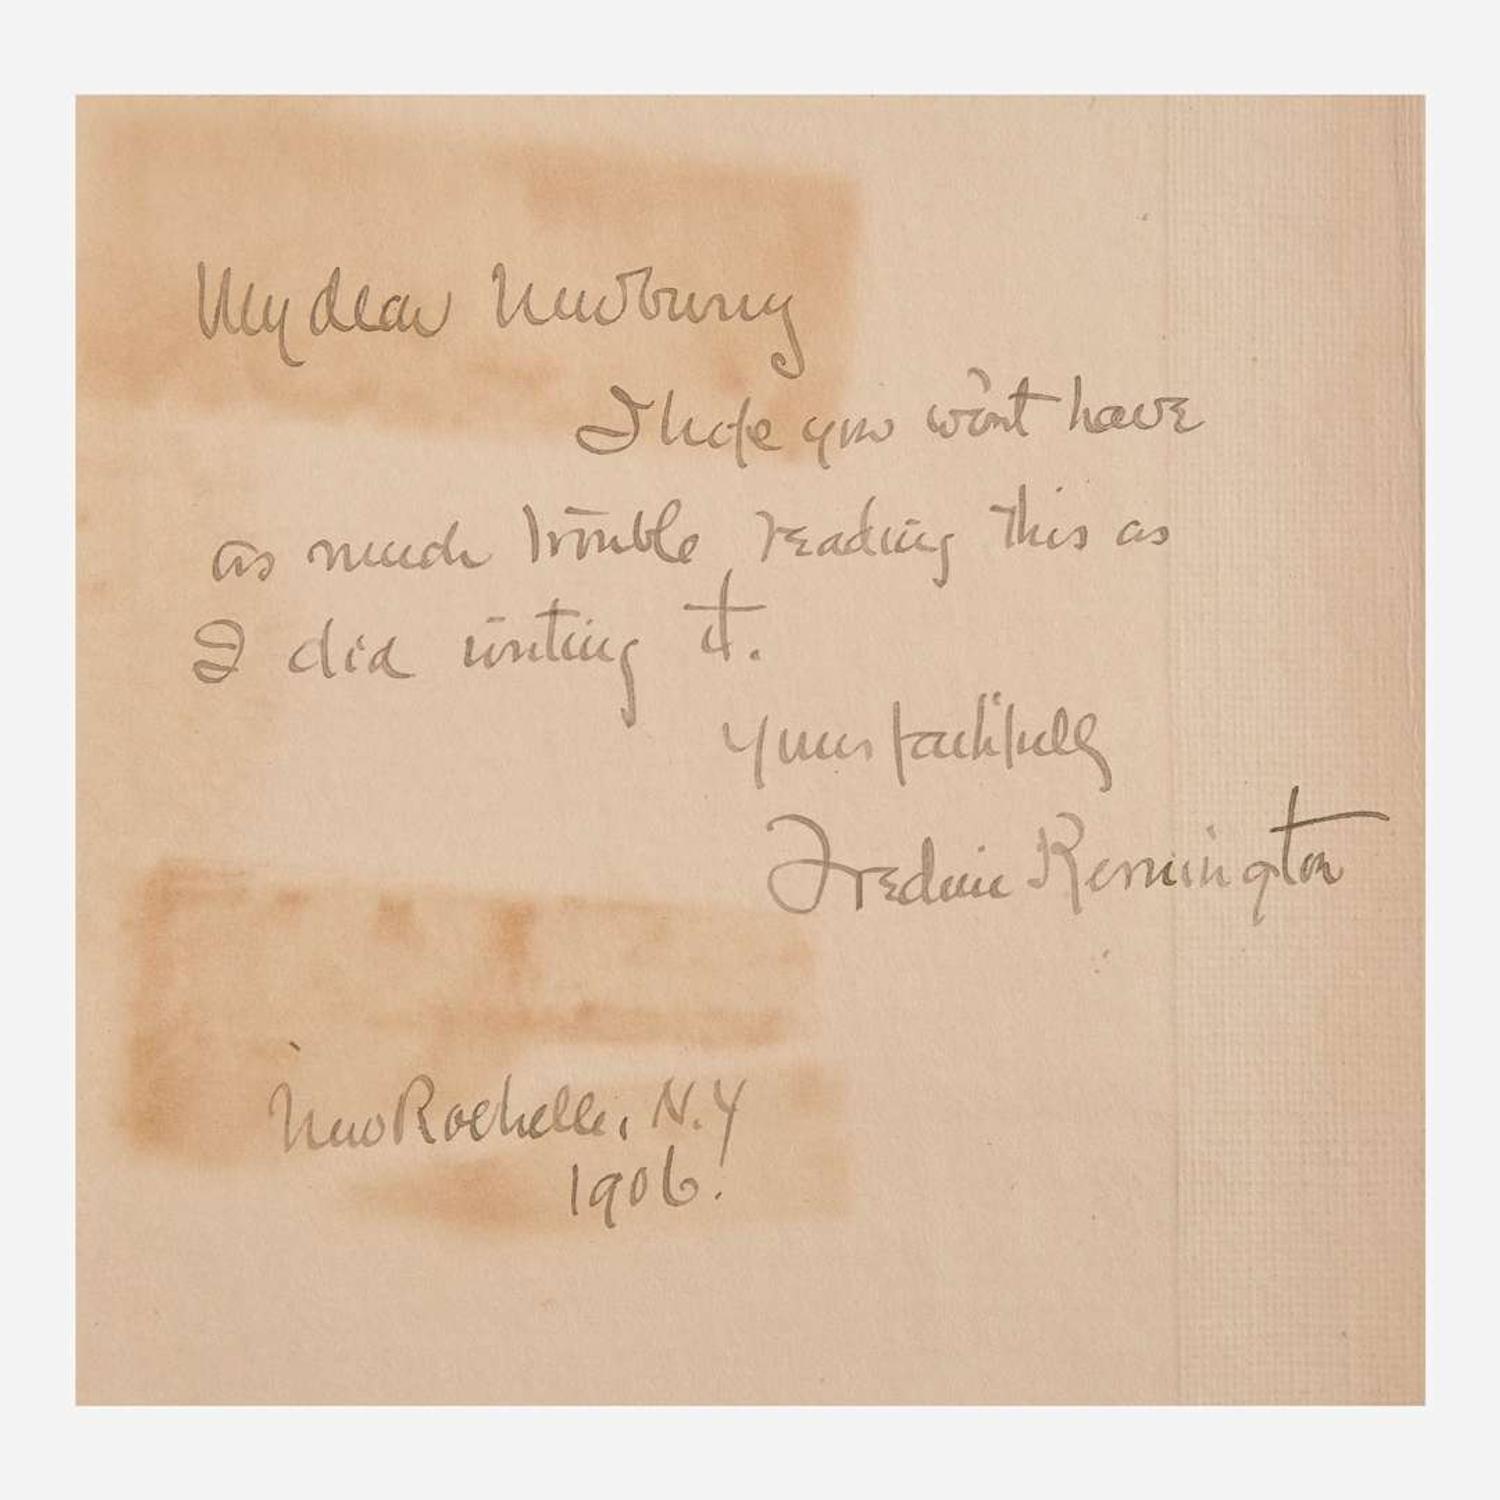 My dear Newburg
I hope you won't have
as much trouble reading this as
I did writing it.
Yours faithfully
Frederic Remington
New Rochelle, N.Y
1906.